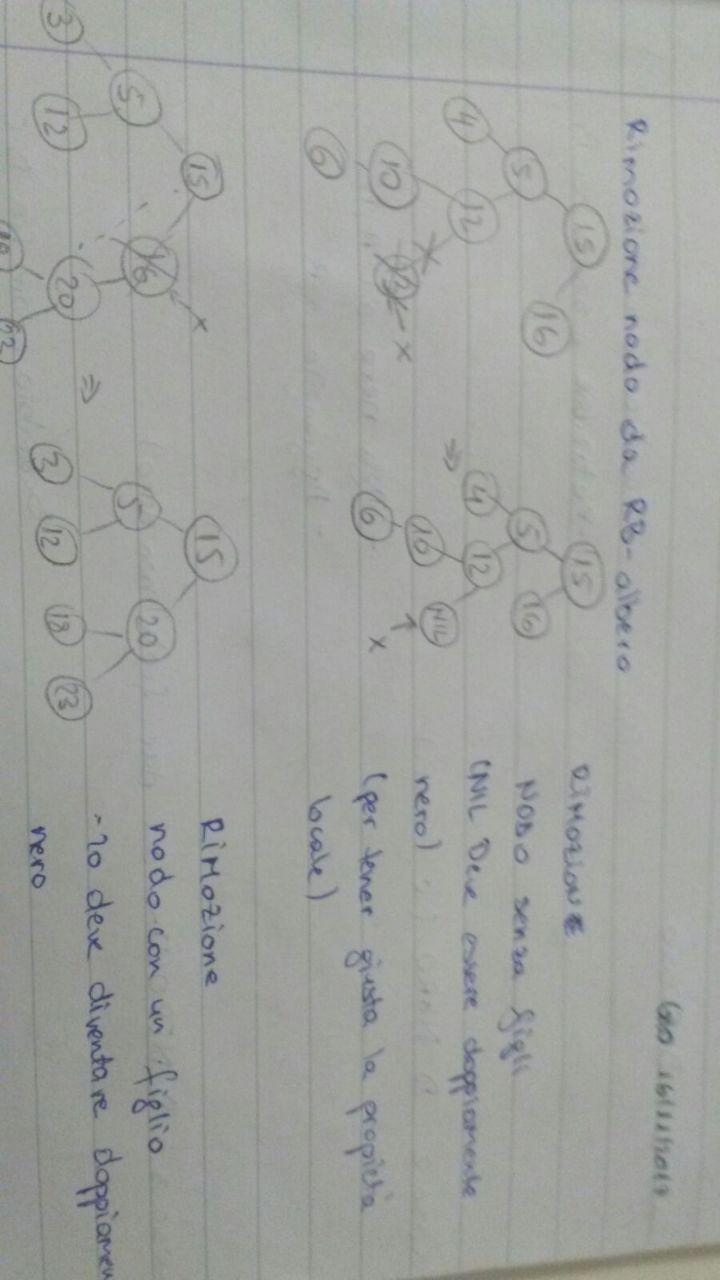 GIO 16/11/2017
Rimozione nodo da RB-albero
15
5
16
4
12
10
6
x
⇒
15
5
16
4
12
10
NIL
6
x
RIMOZIONE
NODO senza figli
(NIL Deve essere doppiamente
nero)
(per tener giusta la propietà
locale)
15
5
16
x
3
12
20
22
⇒
15
5
20
3
12
18
23
RiMozione
nodo con un figlio
-20 deve diventare doppiamen
nero